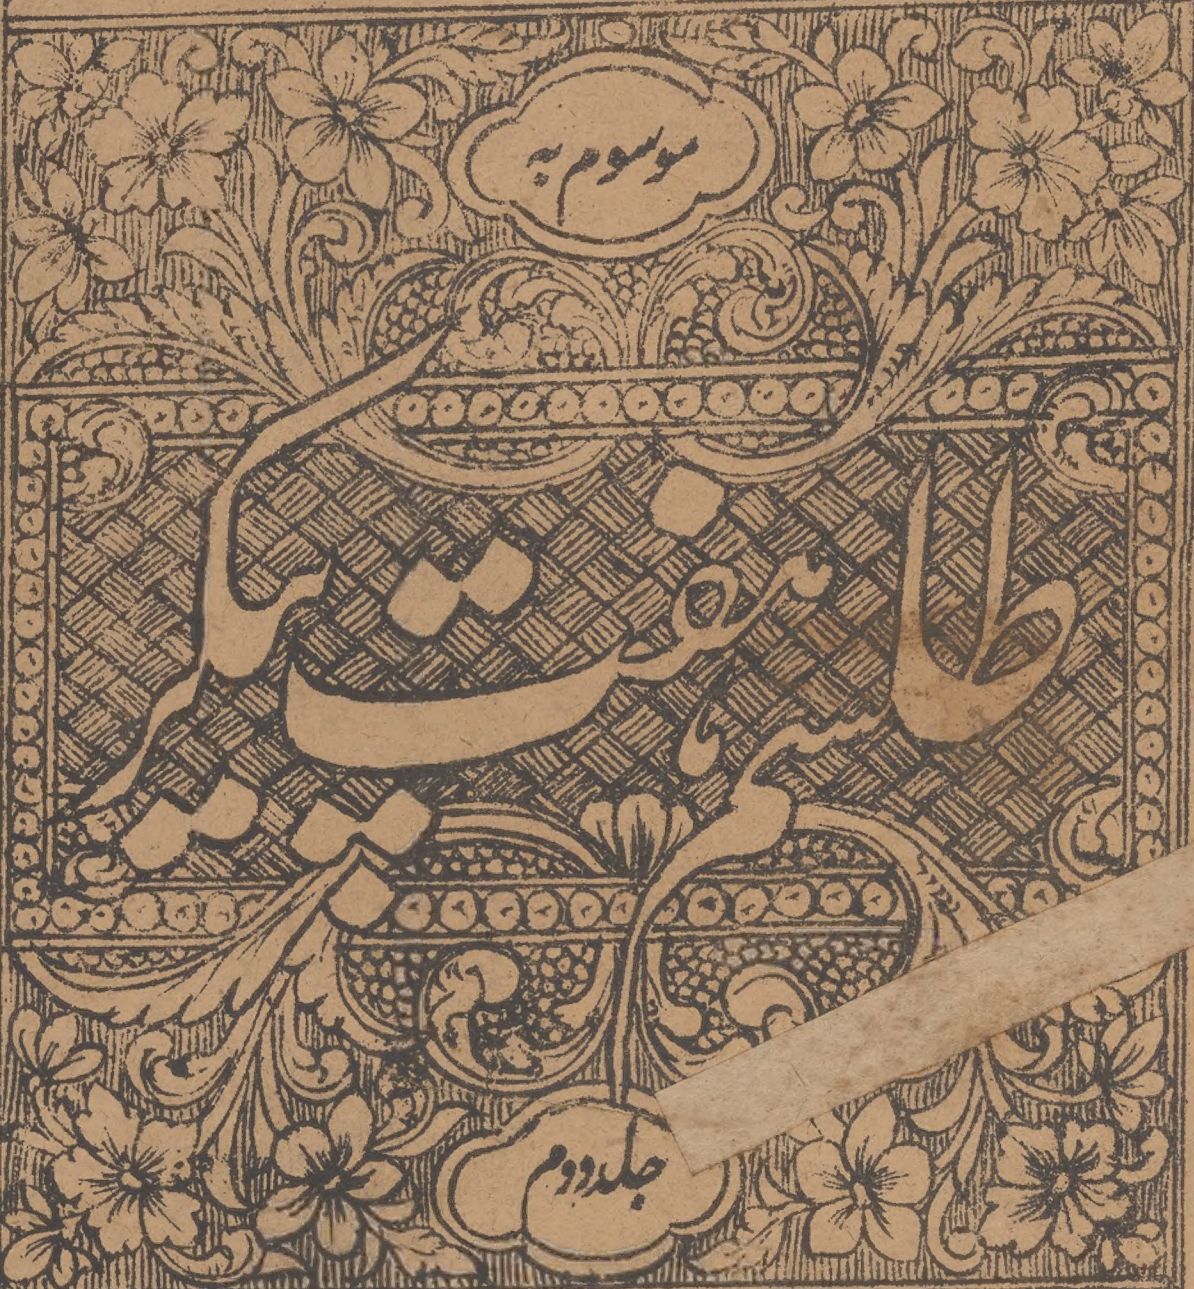 موسوم بہ
طلسم ہفت پیکر
جلد دوم